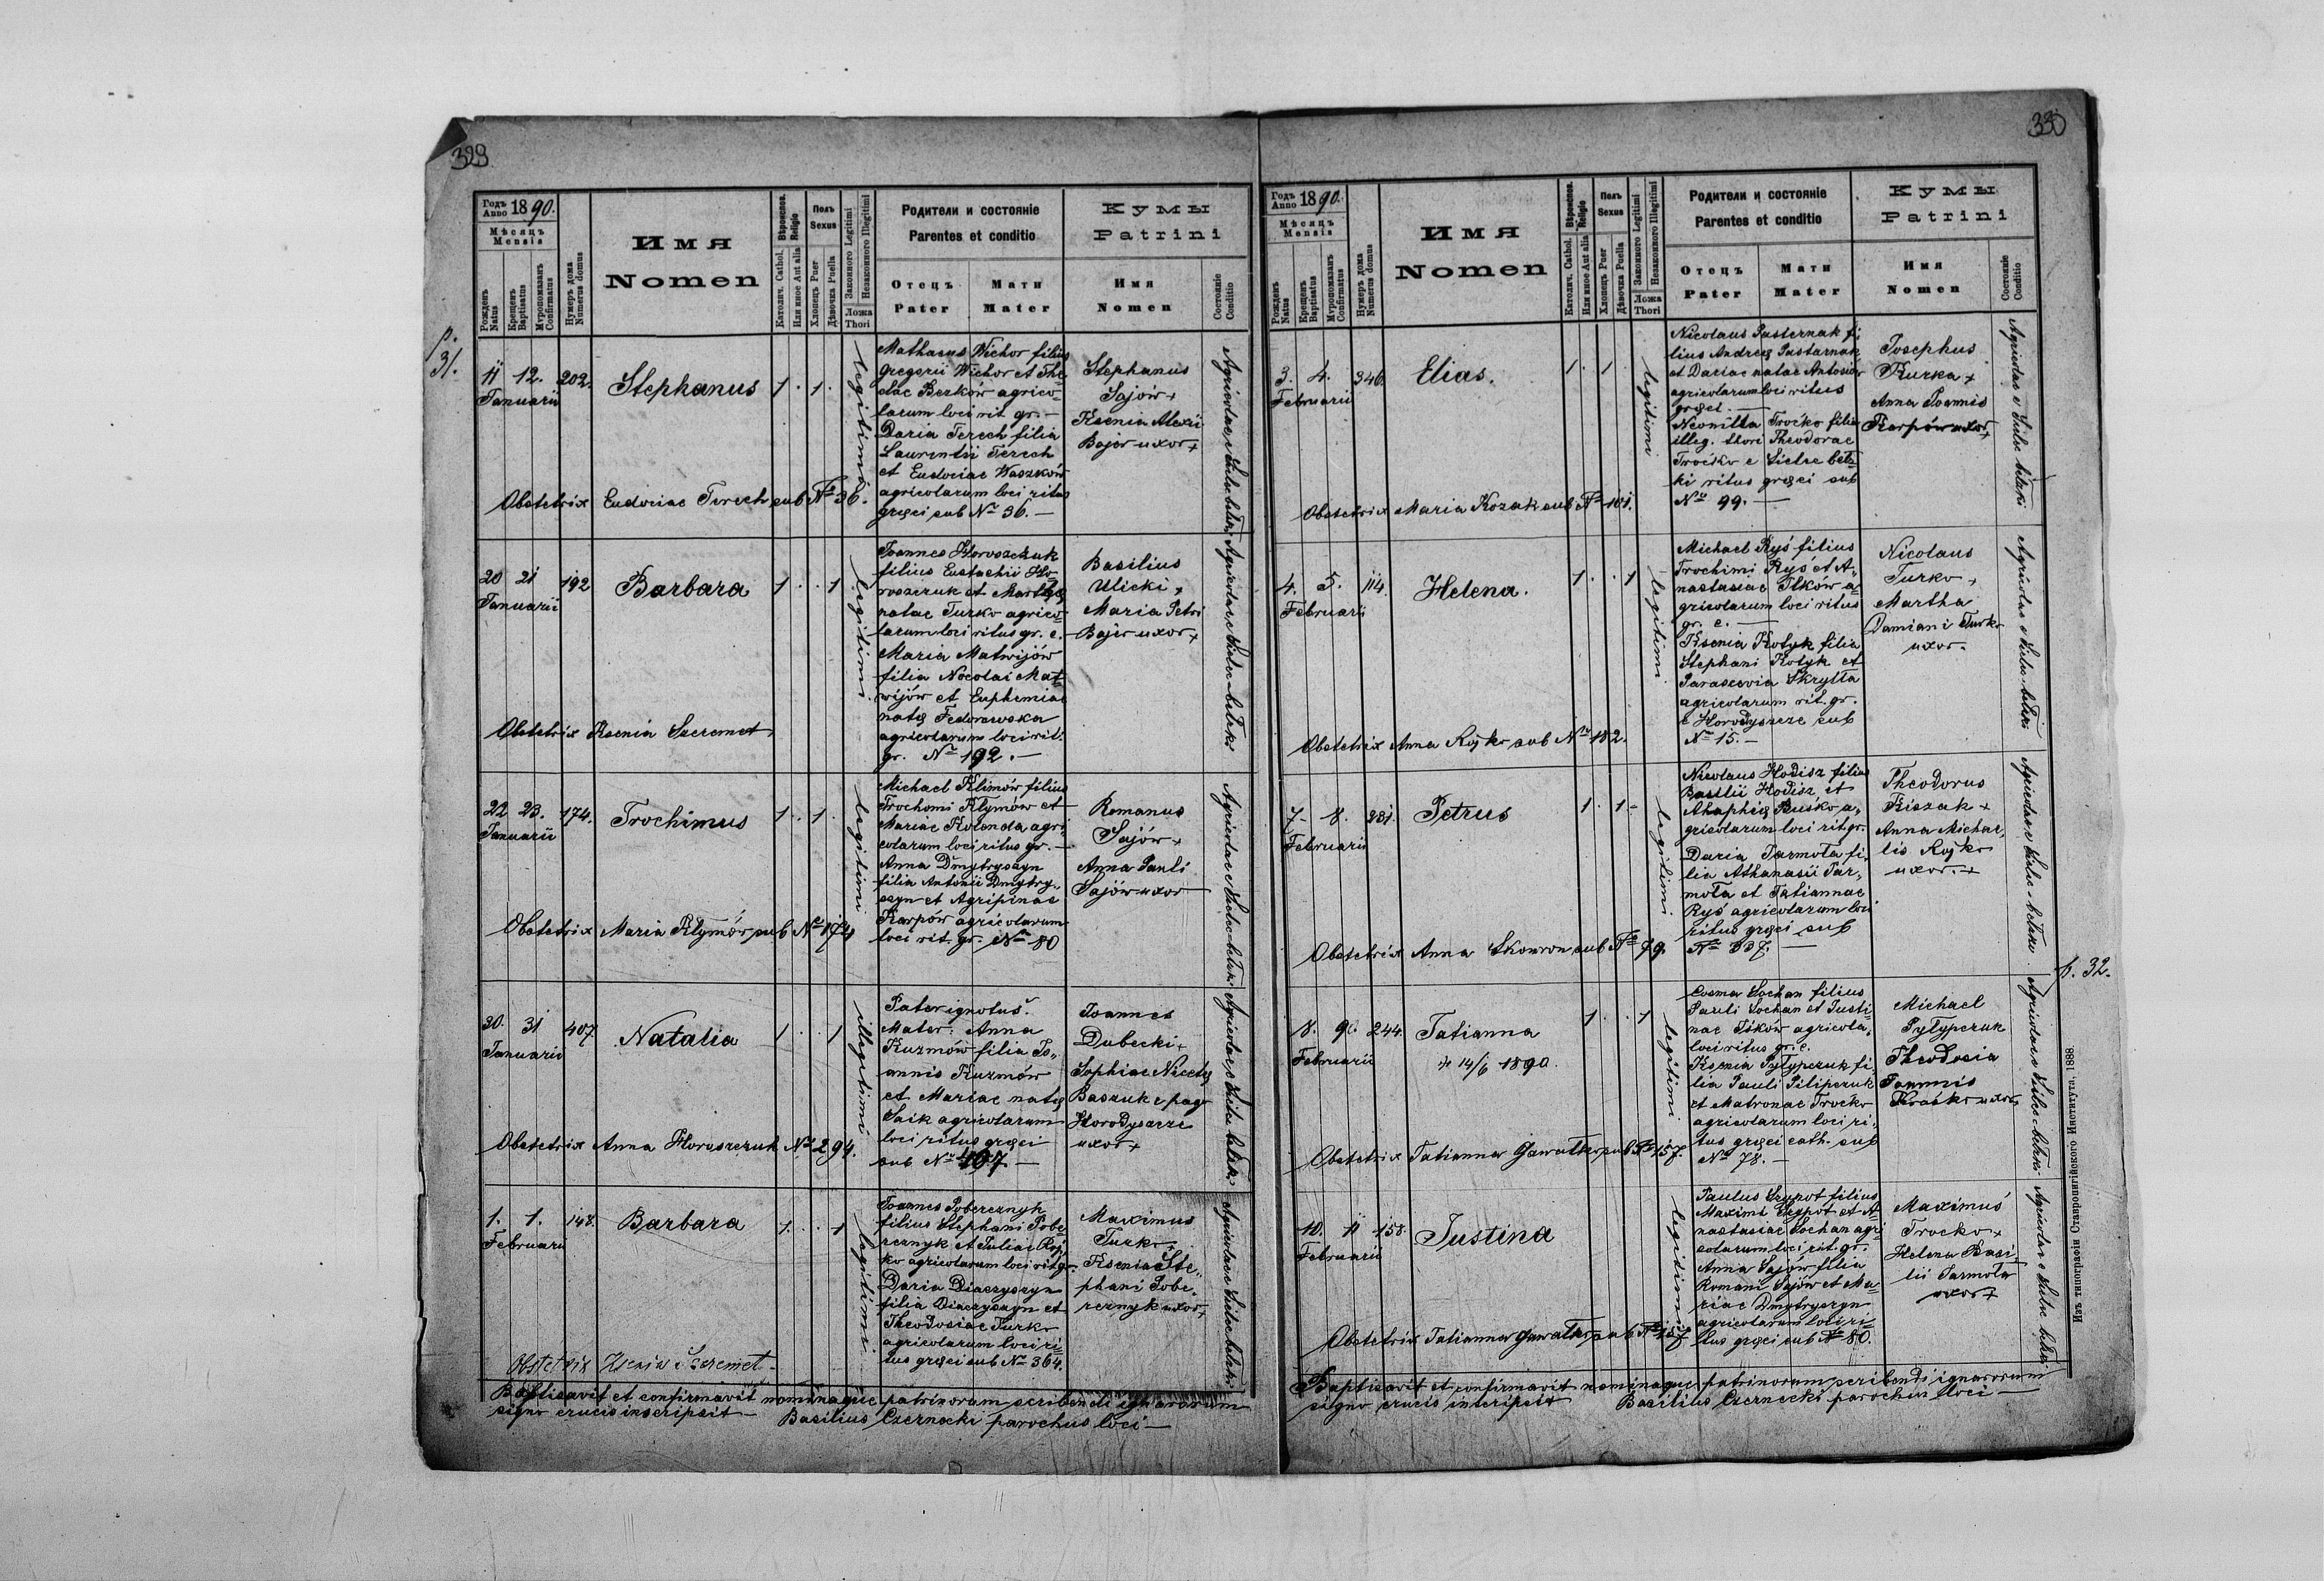 329
Годъ Anno 1890.
Мѣсяцъ
Mensis
Рожденъ Natus
Крещенъ Baptisatus
Муропомазанъ Confirmatus
Нумеръ дома Numerus domus
Имя
Nomen
Вѣроисповѣд. Religio
Католич. Cathol.
Или иное Aut alia
Полъ
Sexus
Хлопецъ Puer
Дѣвочка Puella
Законного Legitimi
Незаконного Illegitimi
Ложа
Thori
Родители и состояніе
Parentes et conditio
Отецъ Мати
Pater Mater
Кумы
Patrini
Имя
Nomen
Состояніе
Conditio
p. 31.
11 12. 202. Stephanus 1 . 1 .
Januarii
legitimi
Mathaeus Wichor filius
Gregorii Wichor et The-
clae Berków agrico-
larum loci rit. gr. —
Daria Terech filia
Laurentii Terech
et Eudociae Waszków
agricolarum loci ritus
graeci sub No 36. —
Stephanus
Sajów +
Ksenia Alexii
Bojer uxor +
Obstetrix Eudociae Terech sub No 36.
20 21 192 Barbara 1 . . 1
Januarii
legitimi
Joannes Horoszczuk
filius Eustachii Ho-
roszczuk et Marthae
natae Turko agrico-
larum loci ritus gr. c.
Maria Matwijów
filia Nocolai Mat-
wijów et Euphemiae
natae Fedorowska
agricolarum loci rit.
gr. No 192. —
Basilius
Ulicki +
Maria Petri
Bojer uxor +
Obstetrix Ksenia Szeremet
22 23. 174. Trochimus 1 . 1 .
Januarii
legitimi
Michael Klimów filius
Trochomi Klymów et
Mariae Kolenda agri-
colarum loci ritus gr. —
Anna Dmytryszyn
filia Antonii Dmytry-
szyn et Agripinae
Karpów agricolarum
loci rit. gr. No 80
Romanus
Sajów +
Anna Pauli
Sajów uxor
Obstetrix Maria Klymów sub No 174
30. 31 407. Natalia 1 . . 1
Januarii
illegitimi
Pater ignotus.
Mater: Anna
Kuzmów filia Jo-
annis Kuzmów
et Mariae natae
Saik agricolarum
loci ritus graeci
sub No 407. —
Joannes
Dubecki +
Sophiae Nicetae
Baszuk e pago
Horodyszcze
uxor +
Obstetrix Anna Horoszczuk No 294.
1. 1. 148. Barbara 1 . . 1
Februarii
legitimi
Joannes Pobereznyk
filius Stephani Pobe-
reznyk et Juliae Roj-
ko agricolarum loci rit gr.
Daria Diaczyszyn
filia Diaczyszyn et
Theodosiae Turko
agricolarum loci ri-
tus graeci sub No 364.
Maximus
Turko +
Ksenia Ste-
phani Pobe-
reznyk uxor +
Obstetrix Ksenia Szeremet
Baptisavit et confirmavit nominaque patrinorum scribendi ignarorum
signo crucis inscripsit — Basilius Czernecki parochus loci —
330
Годъ Anno 1890.
Мѣсяцъ
Mensis
Рожденъ Natus
Крещенъ Baptisatus
Муропомазанъ Confirmatus
Нумеръ дома Numerus domus
Имя
Nomen
Вѣроисповѣд. Religio
Католич. Cathol.
Или иное Aut alia
Полъ
Sexus
Хлопецъ Puer
Дѣвочка Puella
Законного Legitimi
Незаконного Illegitimi
Ложа
Thori
Родители и состояніе
Parentes et conditio
Отецъ Мати
Pater Mater
Кумы
Patrini
Имя
Nomen
Состояніе
Conditio
3. 4. 346. Elias. 1 . 1 .
Februarii
legitimi
Nicolaus Pasternak fi-
lius Andreae Pastarnak
et Dariae natae Antosiow
agricolarum loci ritus
graeci. —
Neonilla Troćko filia
illeg. thori Theodorae
Troćko e Sielec beł-
ki ritus graeci sub
No 99. —
Josephus
Kurka +
Anna Joannis
Karpów uxor +
Obstetrix Maria Kozak sub No 101.
4. 5. 114. Helena. 1 . . 1
Februarii
legitimi
Michael Ryś filius
Trochimi Ryś et A-
nastasiae Ilków a-
gricolarum loci ritus
gr. c. —
Ksenia Kotyk filia
Stephani Kotyk et
Parascevia Skrylta
agricolarum rit. gr.
e Horodyszcze sub
No 15. —
Nicolaus
Turko +
Martha
Damiani Turko
uxor.
Obstetrix Anna Rojko sub No 182.
7. 8. 281. Petrus 1 . 1 .
Februarii
legitimi
Nicolaus Hodisz filius
Basilii Hodisz et
Ahaphiae Buśko a-
gricolarum loci rit gr.
Daria Jarmoła fi-
lia Athanasii Jar-
moła et Tatiannae
Ryś agricolarum loci
ritus graeci sub
No 337. —
Theodorus
Kiszak +
Anna Michae-
lis Rojko
uxor. +
Obstetrix Anna Skowron sub No 79.
p. 32.
8. 9. 244. Tatianna 1 . . 1
Februarii
+ 14/6 1890.
legitimi
Cosma Sochan filius
Pauli Sochan et Justi-
nae Iśków agricola.
loci ritus gr. c.
Ksenia Pytypczuk fi-
lia Pauli Pilipczuk
et Matronae Troćko
agricolarum loci ri-
tus graeci cath. sub
No 78. —
Michael
Pytypczuk
Theodosia
Joannis
Troćko uxor
Obstetrix Tatianna Gawałko sub No 157.
10. 11 158. Justina
Februarii
legitimi
Paulus Szypot filius
Maximi Szypot et A-
nastasiae Sochan agri-
colarum loci rit. gr.
Anna Sajów filia
Romani Sajów et Ma-
riae Dmytryszyn
agricolarum loci ri-
tus graeci sub No 80.
Maximus
Trocko +
Helena Basi-
lii Jarmoła
uxor +
Obstetrix Tatianna Gawałko sub No 157
Baptisavit et confirmavit nominaque patrinorum scribendi ignarorum
signo crucis inscripsit Basilius Czernecki parochus loci —
Изъ типографіи Ставропигійского Института. 1888.